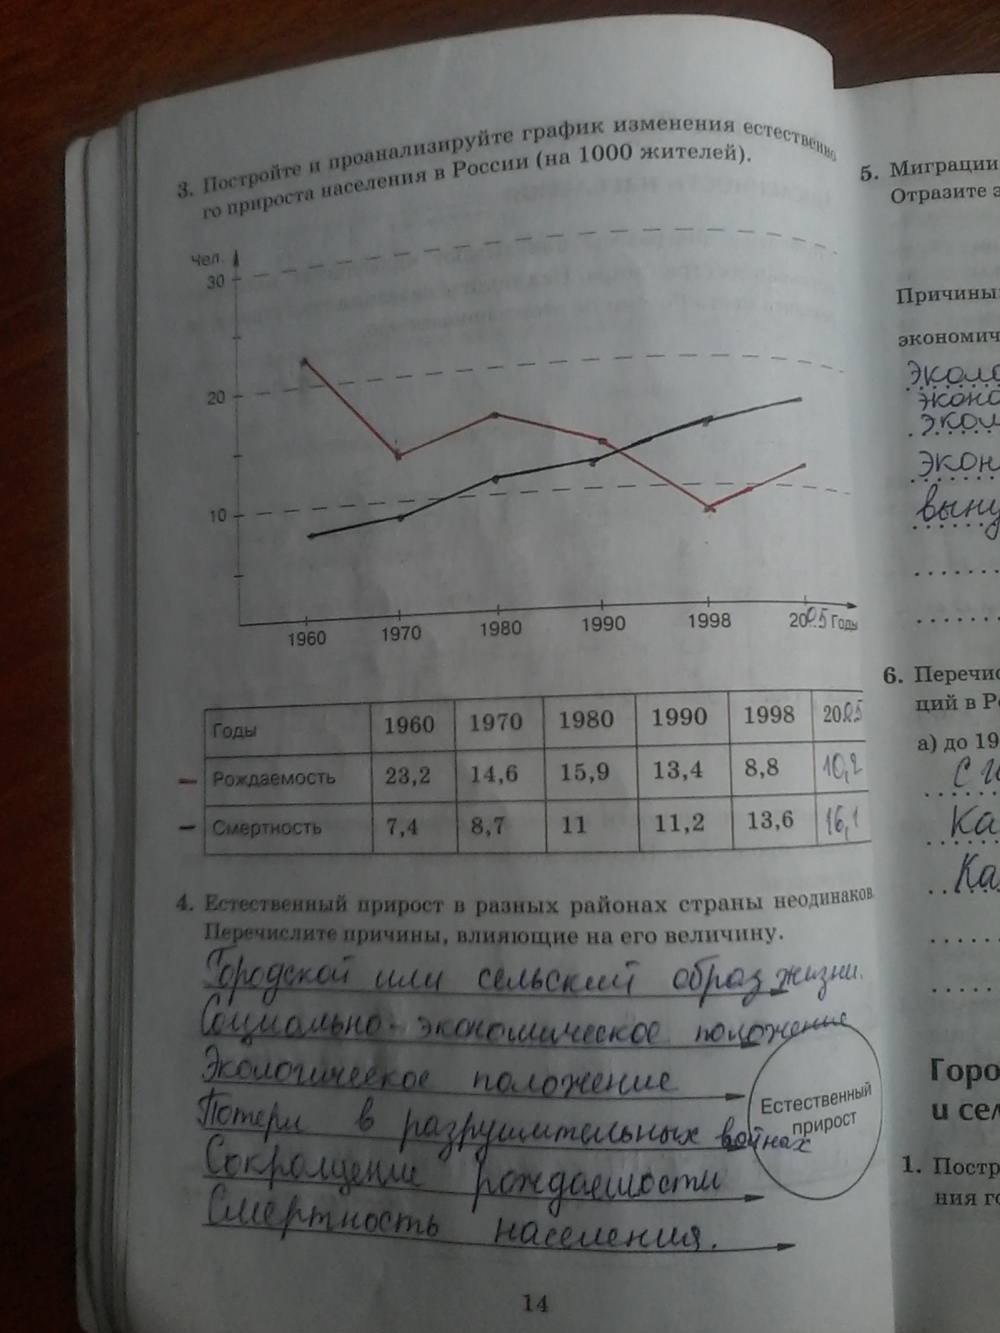 3. Постройте и проанализируйте график изменения естественно
го прироста населения в России (на 1000 жителей).
Чел.
30
20
10
1960 1970 1980 1990 1998 2005 Годы
Годы 1960 1970 1980 1990 1998 2005
Рождаемость 23,2 14,6 15,9 13,4 8,8 10,2
Смертность 7,4 8,7 11 11,2 13,6 16,1
4. Естественный прирост в разных районах страны неодинаков
Перечислите причины, влияющие на его величину.
Городской или сельский образ жизни.
Социально-экономическое положение
Экологическое положение
Потери в разрушительных войнах
Сокращение рождаемости
Смертность населения.
Естественный
прирост
14
5. Миграции
Отразите з
Причины
экономич
эколо
эконо
экол
экон
выну
6. Перечис
ций в Р
а) до 19
Ка
Ка
Горо
и сел
1. Постр
ния го